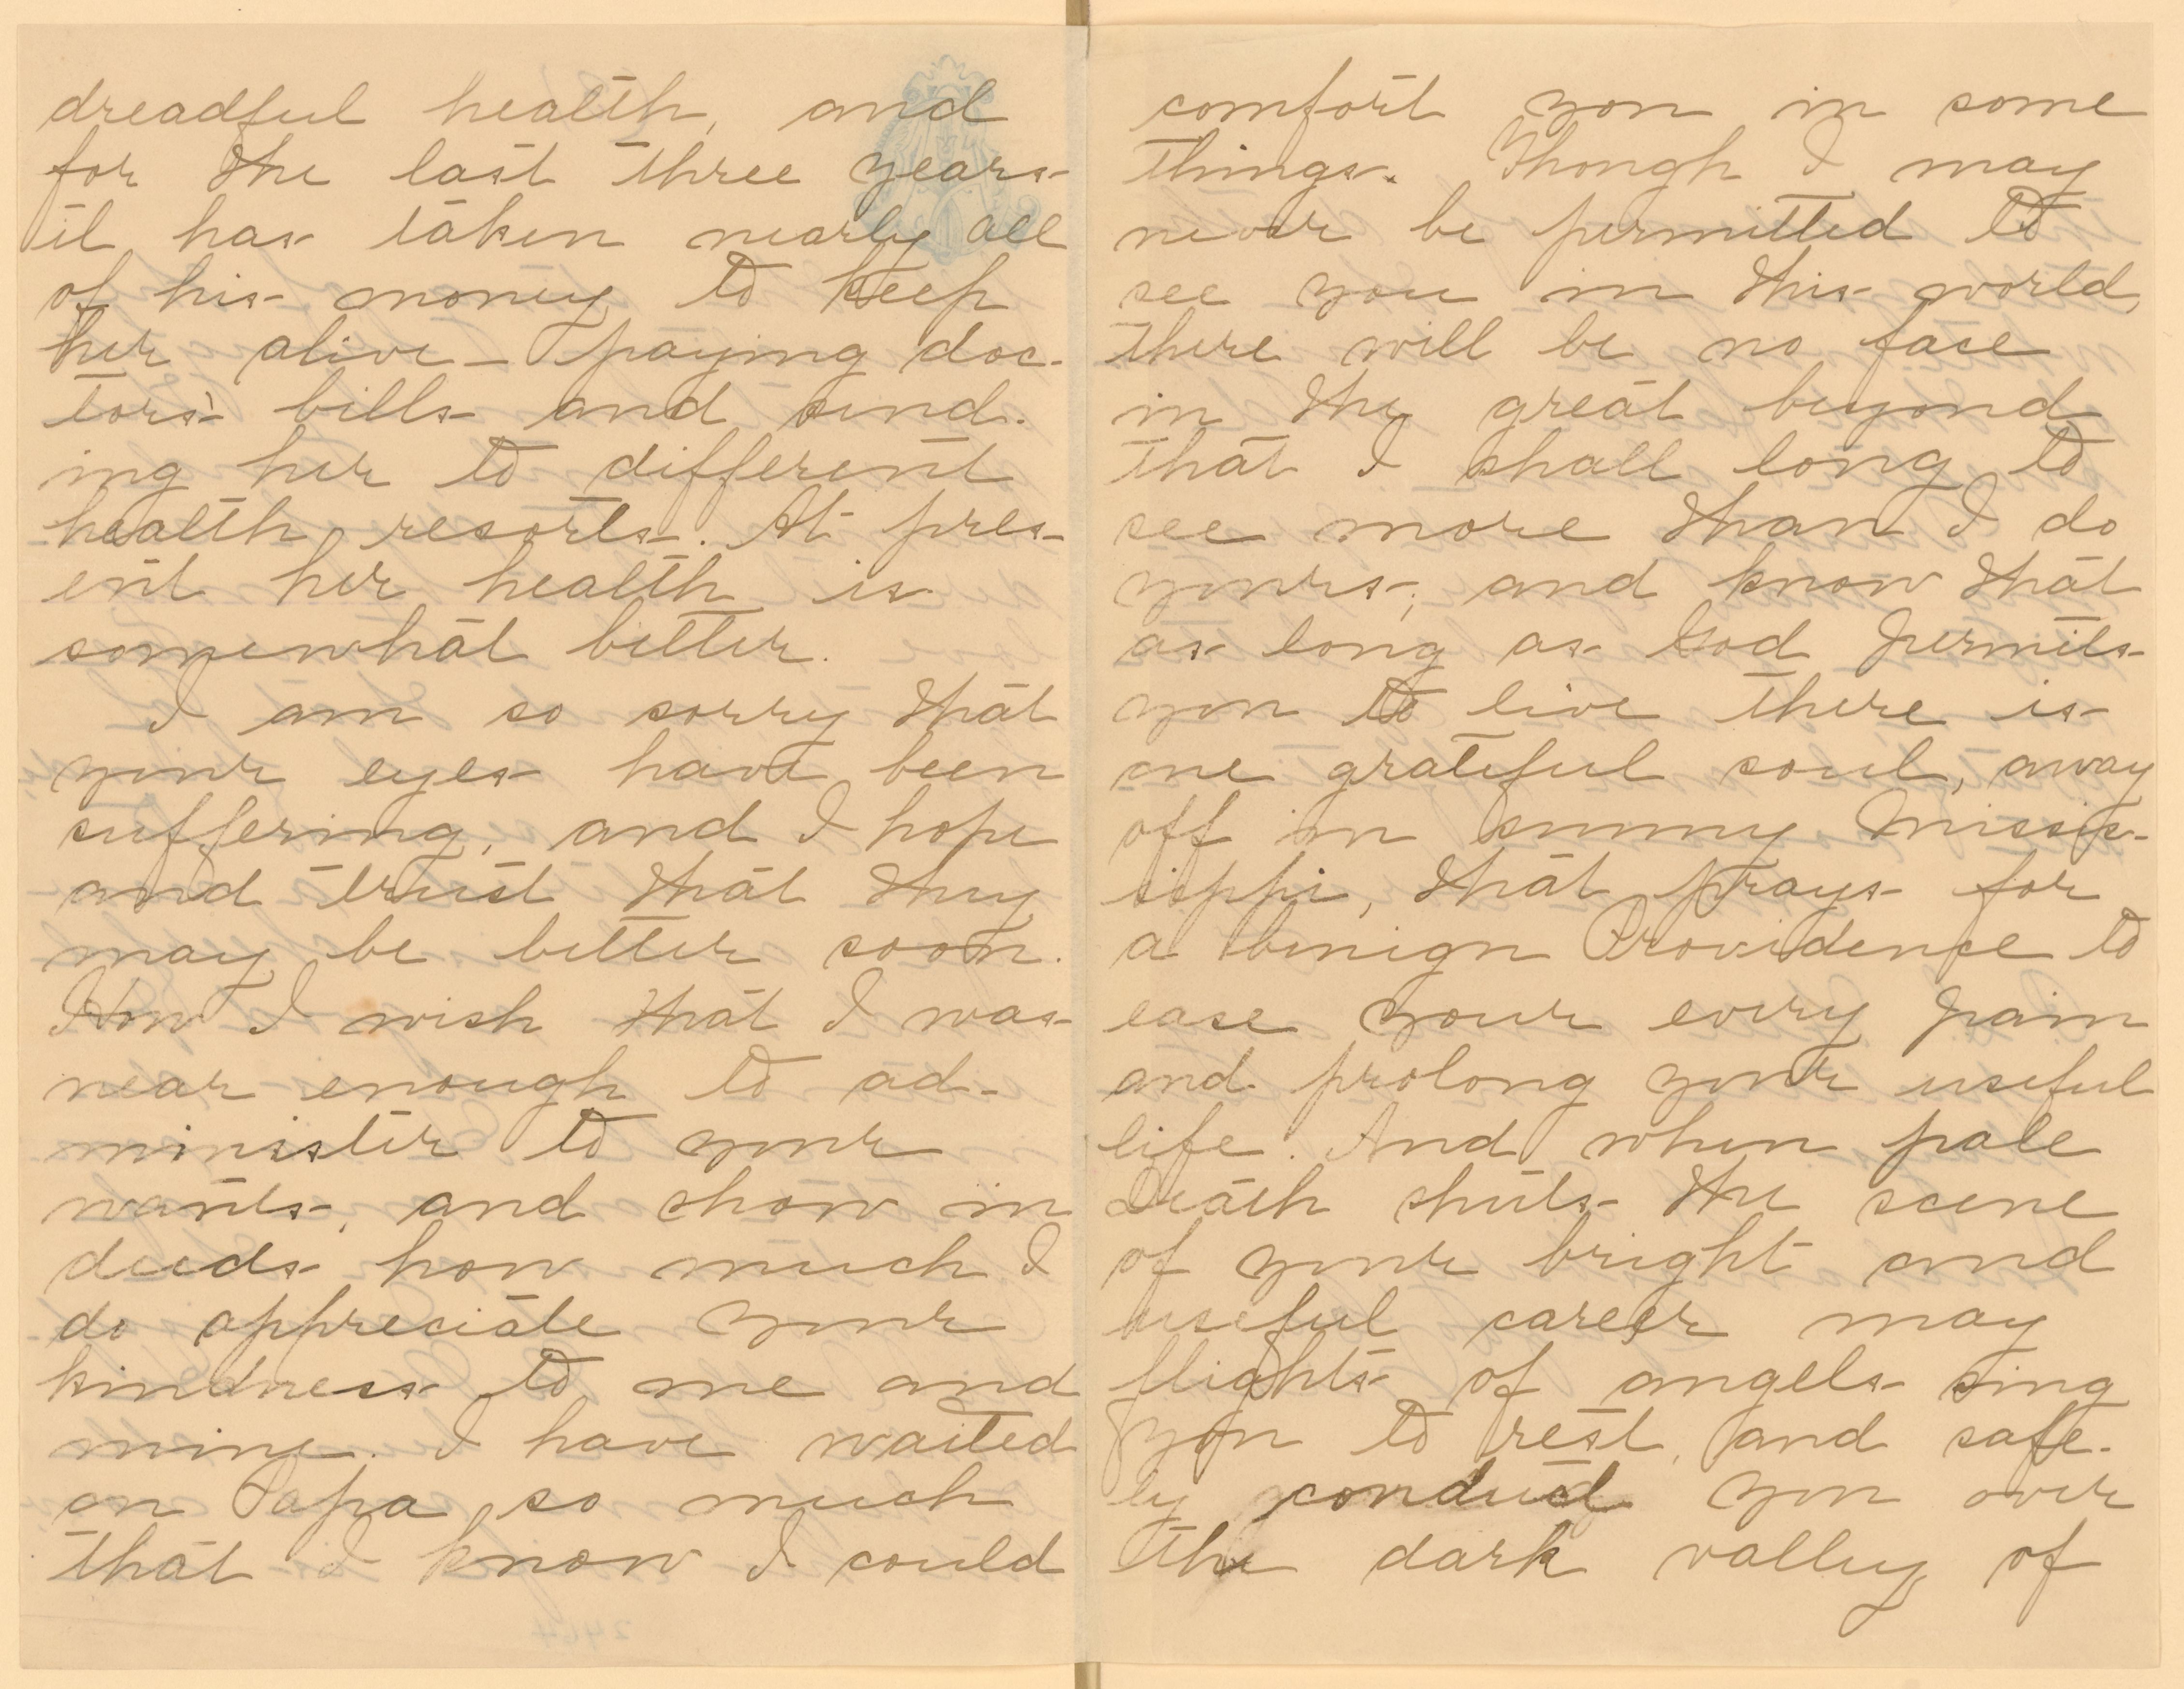 dreadful health, and
for the last three years
it has taken nearly all
of his money to keep
her alive - paying doc-
tors' bills and send-
ing her to different
health resorts. At pres-
ent her health is
somewhat better.
I am so sorry that
your eyes have been
suffering, and I hope
and trust that they
may be better soon.
How I wish that I was
near enough to ad-
minister to your
wants, and show in
deeds how much I
do appreciate your
kindness to me and
mine. I have waited
on Papa so much
that I know I could
comfort you in some
things. Though I may
never be permitted to
see you in this world,
there will be no face
in the great beyond
that I shall long to
see more than I do
yours; and know that
as long as God permits
you to live there is
one grateful soul, away
off in sunny Missis-
sippi, that prays for
a benign Providence to
ease your every pain
and prolong your useful
life. And when pale
Death shuts the scene
of your bright and
useful career may
flights of angels sing
you to rest, and safe-
ly conduct you over
the dark valley of